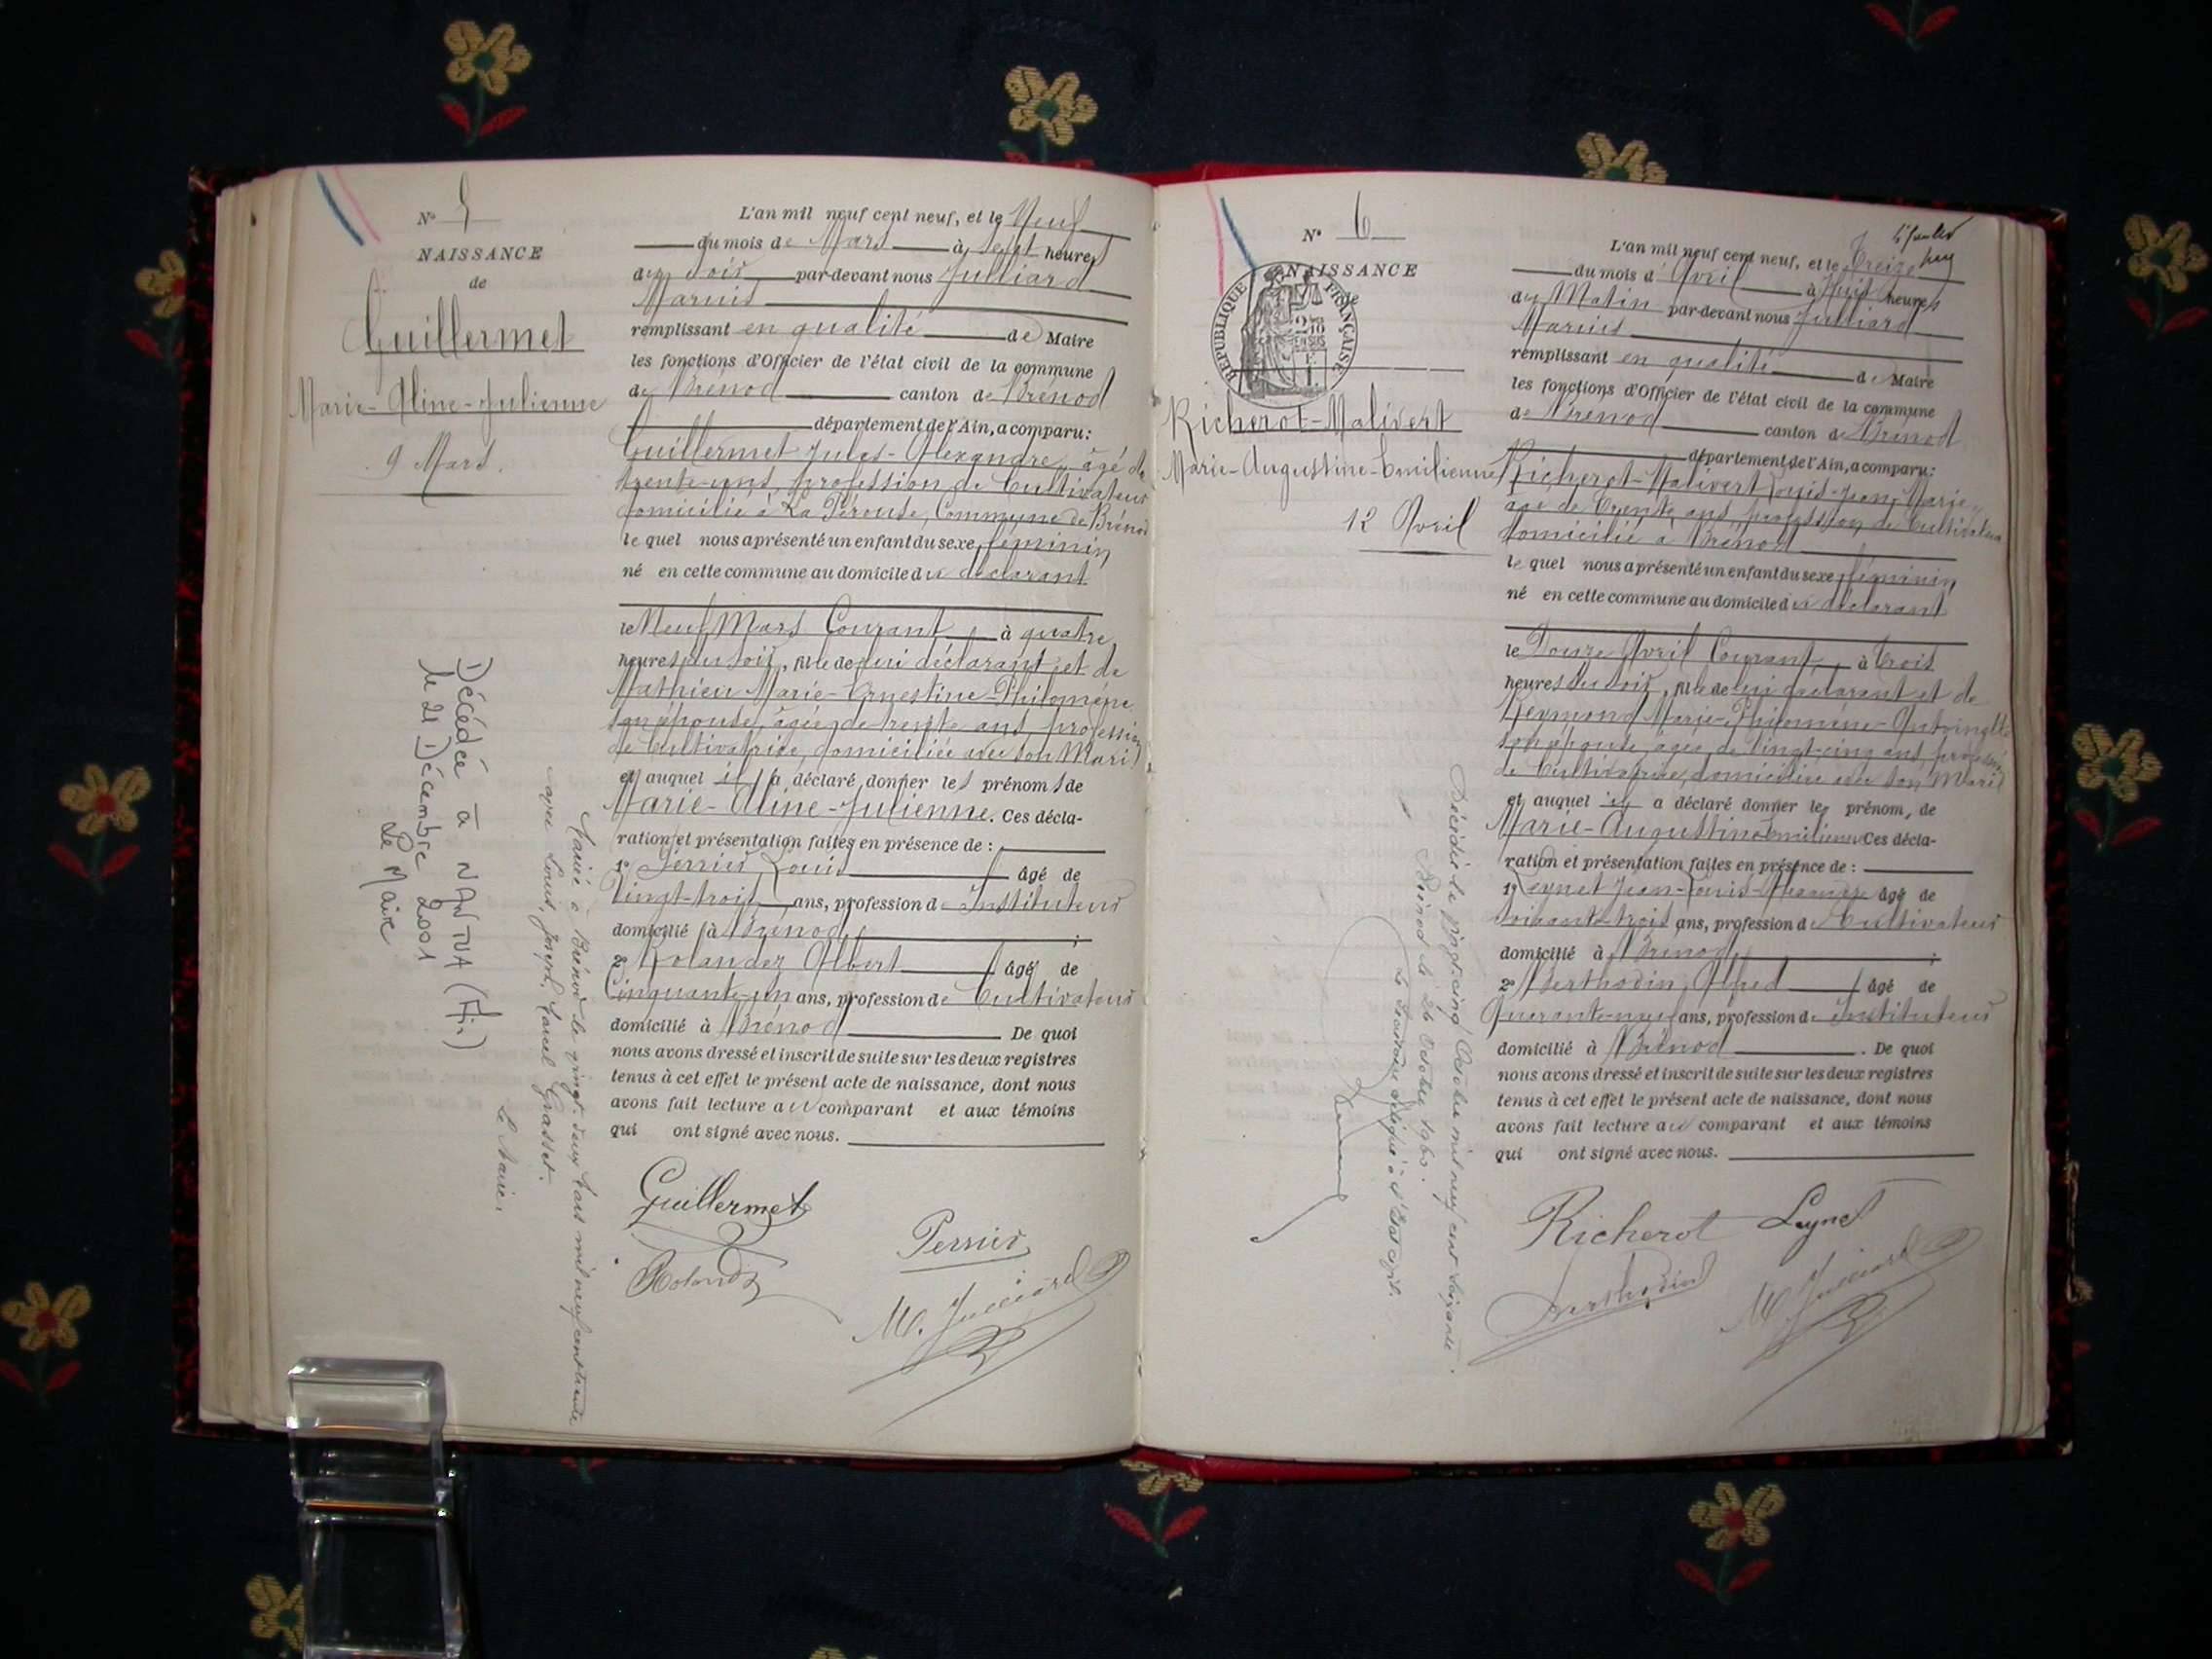 N° 5
NAISSANCE
de
Guillermet
Marie-Aline-Julienne
9 Mars.
L'an mil neuf cent neuf, et le Neuf
du mois de Mars à sept heures
du soir par-devant nous Julliard
Marius
remplissant en qualité de Maire
les fonctions d'Officier de l'état civil de la commune
de Brénod canton de Brénod
département de l'Ain, a comparu:
Guillermet Jules-Alexandre, âgé de
trente ans, profession de Cultivateur
domicilié à La Pérouse, Commune de Brénod
le quel nous a présenté un enfant du sexe féminin
né en cette commune au domicile du déclarant
le Neuf Mars Courant à quatre
heures du soir, fille de lui déclarant et de
Mathieu Marie-Ernestine-Philomène
son épouse, âgée de trente ans, profession
de Cultivatrice, domiciliée avec son Mari
et auquel il a déclaré donner les prénoms de
Marie-Aline-Julienne. Ces décla-
ration et présentation faites en présence de :
1° Perrier Louis âgé de
Vingt-trois ans, profession d'Instituteur
domicilié à Brénod ;
2° Rolandez Albert âgé de
Cinquante-un ans, profession de Cultivateur
domicilié à Brénod De quoi
nous avons dressé et inscrit de suite sur les deux registres
tenus à cet effet le présent acte de naissance, dont nous
avons fait lecture au comparant et aux témoins
qui ont signé avec nous.
Guillermet
Perrier
Rolandez
M. Julliard
Mariée à Brénod le vingt-deux Mars mil neuf cent trente
avec Louis, Joseph, Marcel Grasset.
Le Maire,
Décédée à NANTUA (Ain)
le 21 Décembre 2001
Le Maire
N° 6
NAISSANCE
RÉPUBLIQUE FRANÇAISE
2/10 EN SUS
Richerot-Malivert
Marie-Augustine-Emilienne
12 Avril
L'an mil neuf cent neuf, et le Treize
du mois d'Avril à huit heures
du Matin par-devant nous Julliard
Marius
remplissant en qualité de Maire
les fonctions d'Officier de l'état civil de la commune
de Brénod canton de Brénod
département de l'Ain, a comparu:
Richerot-Malivert Louis-Jean-Marie,
âgé de Trente ans, profession de Cultivateur
domicilié à Brénod
le quel nous a présenté un enfant du sexe féminin
né en cette commune au domicile du déclarant
le Douze Avril Courant à trois
heures du soir, fille de lui déclarant et de
Reymond Marie-Philomène-Antoinette
son épouse, âgée de Vingt-cinq ans, profession
de Cultivatrice, domiciliée avec son Mari
et auquel il a déclaré donner les prénom, de
Marie-Augustine-Emilienne Ces décla-
ration et présentation faites en présence de :
1° Leynet Jean-Louis âgé de
soixante-trois ans, profession de Cultivateur
domicilié à Brénod ;
2° Berthodin Alfred âgé de
Quarante-neuf ans, profession d'Instituteur
domicilié à Brénod . De quoi
nous avons dressé et inscrit de suite sur les deux registres
tenus à cet effet le présent acte de naissance, dont nous
avons fait lecture au comparant et aux témoins
qui ont signé avec nous.
Richerot Leynet
Berthodin
M. Julliard
Décédée le vingt-cinq Octobre mil neuf cent soixante.
Brénod le 26 Octobre 1960.
Le Secrétaire délégué à l'Etat civil.